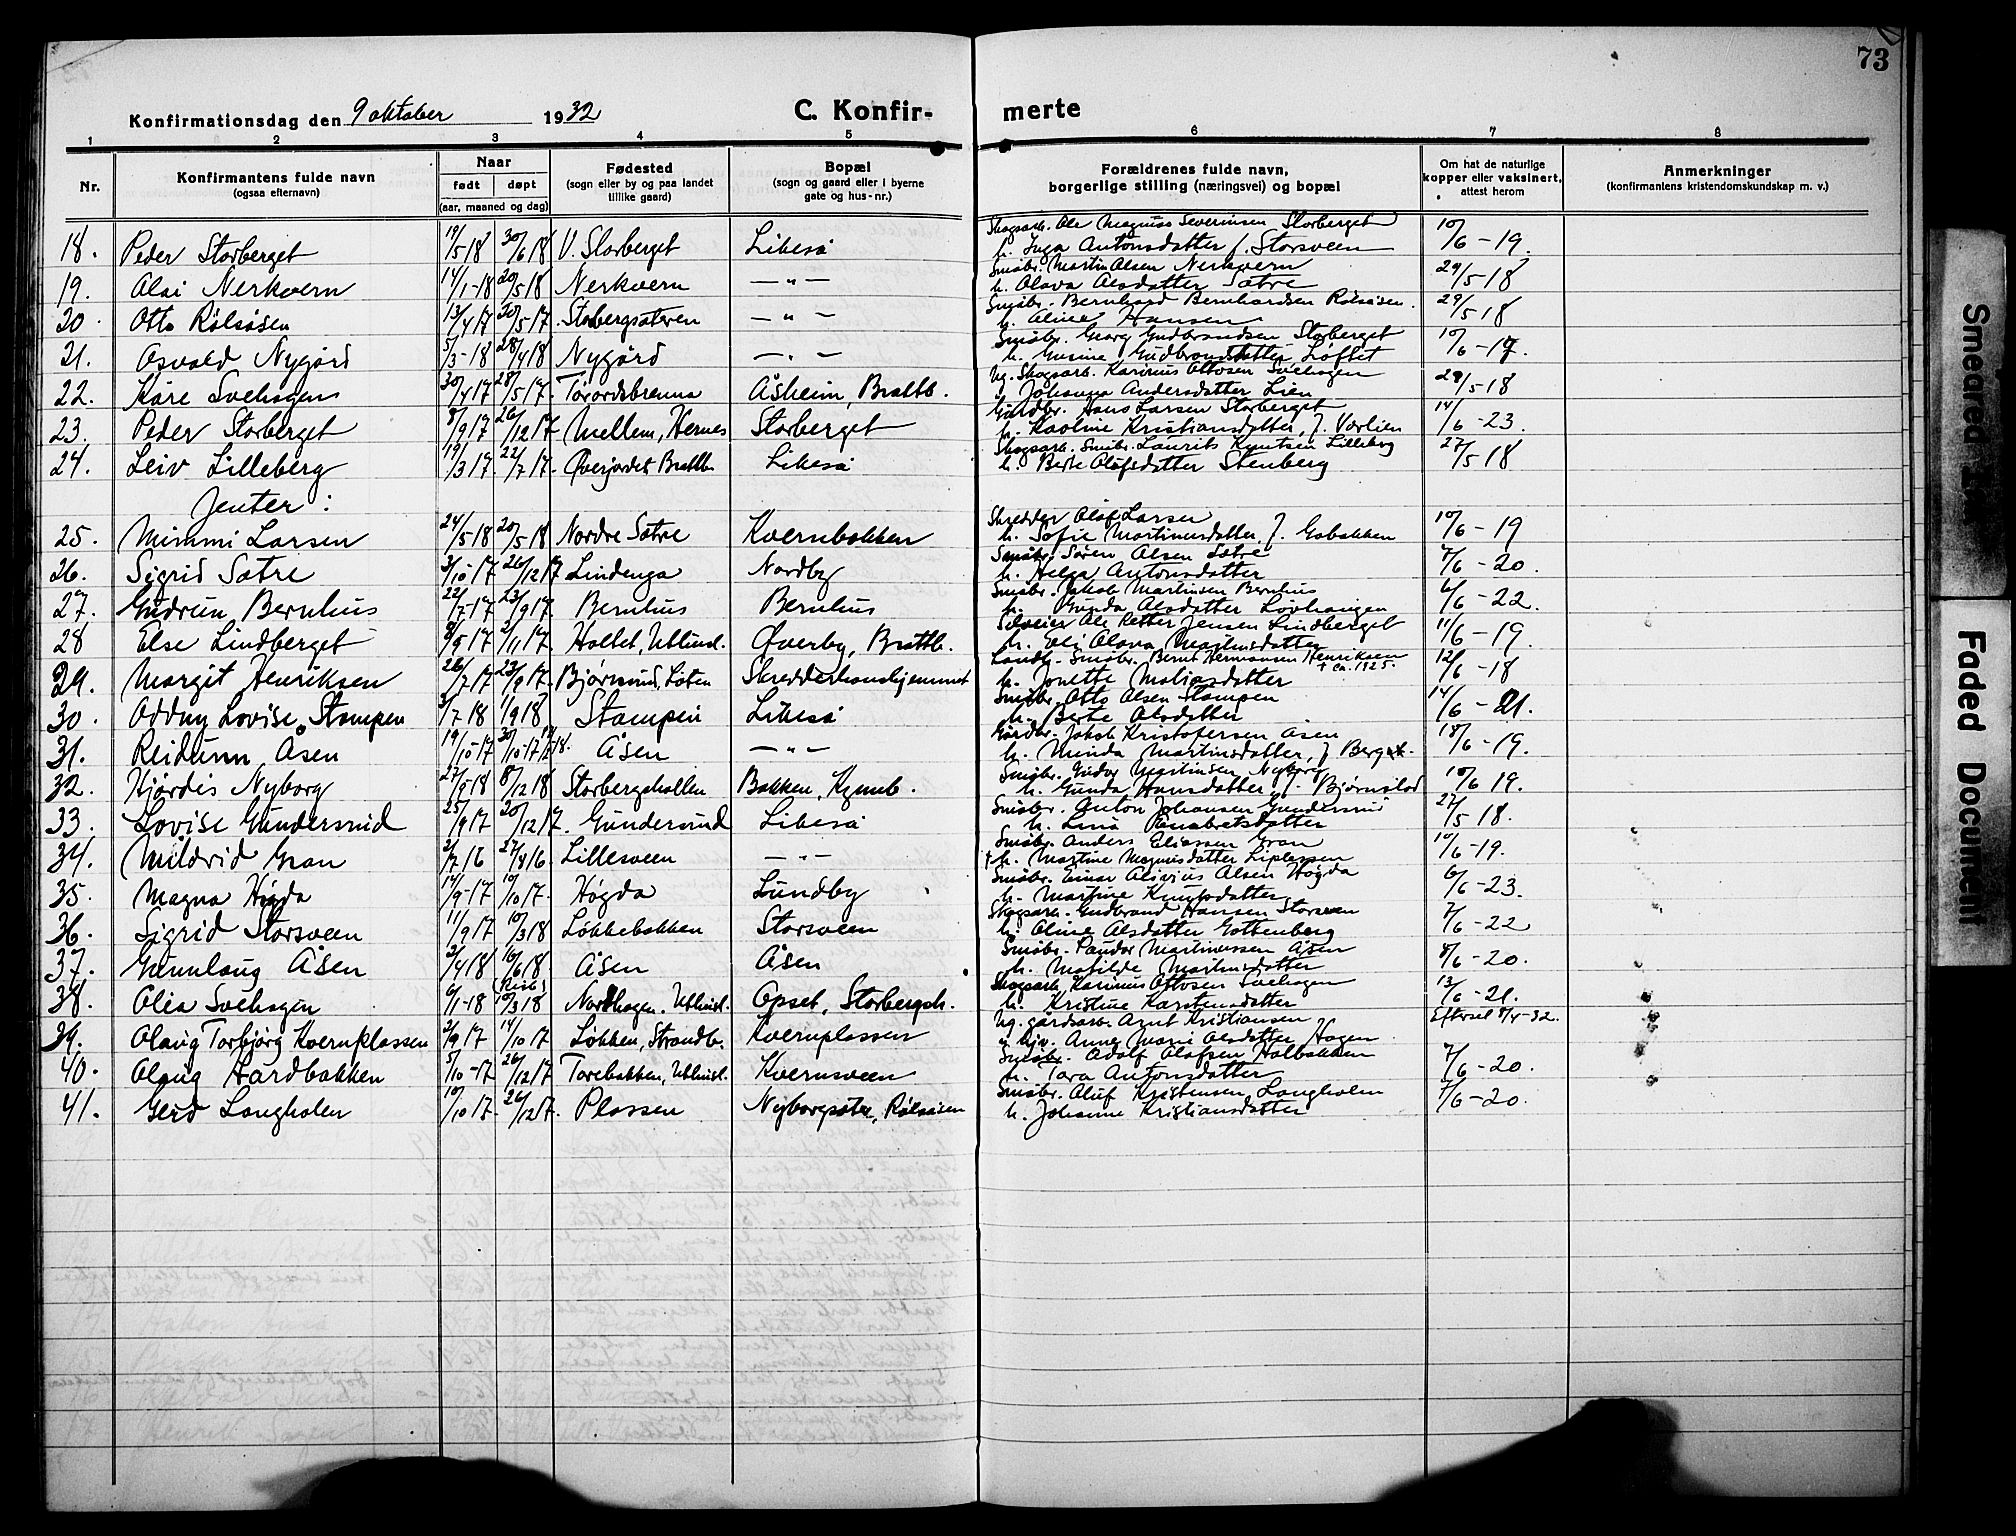 73
Konfirmationsdag den 9 oktober 1932 C. Konfirmerte
1 2 3 4 5 6 7 8
Nr. Konfirmantens fulde navn (ogsaa efternavn) Naar født døpt (aar, maaned og dag) Fødested (sogn eller by og paa landet tillike gaard) Bopæl (sogn og gaard eller i byerne gate og hus-nr.) Forældrenes fulde navn, borgerlige stilling (næringsvei) og bopæl Om hat de naturlige kopper eller vaksinert, attest herom Anmerkninger (konfirmantens kristendomskundskap m. v.)
18. Peder Storberget 19/5 18 30/6 18 V. Storberget Likeså Skogsarb. Ole Magnus Severinsen Storberget h. Inga Antonsdatter f. Storsveen 10/6 - 19.
19. Alai Nerkvern 14/1 - 18 20/5 18 Nerkvern — " — Småbr. Martin Olsen Nerkvern h. Olava Olsdatter Sætre 29/5 18
20. Otto Rölsåsen 13/4 17 20/5 17. Storbergsæteren — " — Småbr. Bernhard Bernhardsen Rölsåsen. h. Aline Hansen 29/5 18
21. Osvald Nygård 5/3 - 18 28/4 18 Nygård — " — Småbr. Georg Gudbrandsen Storberget h. Gusine Gudbrandsdatter Løftet 10/6 - 17.
22. Kåre Svehagen 30/4 17 28/5 17. Törordsbrenna Åsheim, Brattb. Ug. Skogsarb. Karinius Ottosen Svehagen Johanna Andersdatter Lien 29/5 18
23. Peder Storberget 8/9 17 26/12 17 Mellem, Hernes Storberget Gårdbr. Hans Larsen Storberget h. Kaoline Kristiansdatter, f. Værlien 14/6 - 23.
24. Leiv Lilleberg 19/3 17. 22/7 17. Øverjordet Brattb. Likeså Skogsarb. Småbr. Laurits Knutsen Lilleberg h. Berte Olofsdatter Stenberg 27/5 18
Jenter :
25. Mimmi Larsen 24/5 18 20/5 18 Nordre Sætre Kvernbakken Skredder Olof Larsen h. Sofie Martinusdatter, f. Gobakken 10/6 - 19
26. Sigrid Sætre 3/10 17 26/12 17 Lindenga Nordby Småbr. Sören Olsen Sætre h. Helga Antonsdatter 7/6 - 20.
27. Gudrun Bernhus 22/7 - 17 23/9 17. Bernhus Bernhus Småbr. Jakob Martinsen Bernhus h. Gunda Olsdatter Lövhaugen 6/6 - 22.
28 Else Lindberget 8/9 17 4/11 17. Holtet, Utlund. Øverby, Brattb. Selveier Ole Petter Jensen Lindberget h. Eli Olava Martinsdatter 11/6 - 19.
29. Margit Henriksen 26/7 17 23/9 17. Bjørnsrud, Løten Skredderhanshjemmet Landh. Småbr. Bernt Hermansen Henriksen † ca. 1925. h. Jonette Matiasdatter 12/6 - 18
30. Oddny Lovise Stampen 3/7 18 1/9 18 Stampen Likeså Småbr. Otto Olsen Stampen h. Berte Olsdatter 14/6 - 21.
31. Reidunn Åsen 19/10 - 17 30/10 - 17 Åsen — " — Gårdbr. Jakob Kristofersen Åsen h. Minda Martinsdatter, f. Berget. 18/6 - 19.
32. Hjördis Nyborg 27/9 - 18 8/12 18 Storbergshallen Bakken, Kynnb. Småbr. Gudor Martinsen Nyborg h. Gunda Hansdatter f. Björnstad 10/6 19.
33. Lovise Gundersrud 25/9 17 20/12 17. Gundersrud Likeså Småbr. Anton Johansen Gundersrud h. Lina Einabretsdatter 27/5 18.
34. Mildrid Gran 2/7 16 27/8 16 Lillesveen — " — Småbr. Anders Eliassen Gran † h. Martine Magnusdatter Liplassen 10/6 - 19.
35. Magna Högda 14/9 - 17 10/10 17. Högda Lundby Småbr. Einar Alivius Olsen Högda h. Martine Knutsdatter 6/6 - 23.
36. Sigrid Storsveen 11/9 17 10/3 18 Løkkebakken Storsveen Skogsarb. Gudbrand Hansen Storsveen h. Aline Olsdatter Gottenberg 7/6 - 22
37. Gunnlaug Åsen 3/4 18 16/6 18 Åsen Åsen Småbr. Paudor Martinussen Åsen h. Matilde Martinsdatter 8/6 - 20.
38. Olea Svehagen 6/1 - 18 10/3 18 Nordhagen. Utlund. Opset, Storbergsh. Skogsarb. Karinius Ottosen Svehagen h. Kristine Karstensdatter 13/6 - 21.
39. Olaug Torbjörg Kvernplassen 2/9 17 14/10 17 Løkken, Strandb. Kvernplassen Ug. gårdsarb. Arnt Kristiansen Anne Marie Olsdatter Hagen Eftersel 8/5 - 32.
40. Olaug Hardbakken 5/10 - 17 26/12 17 Torebakken, Utlund. Kvernsveen Småbr. Adolf Olofsen Halbakken h. Tora Antonsdatter 7/6 - 20.
41. Gerd Langholen 10/10 17. 26/12 17. Plassen Nyborgsæter, Rölsåsen Småbr. Oluf Kristensen Langholen h. Johanne Kristiansdatter 7/6 - 20.
Smeared
Faded Document